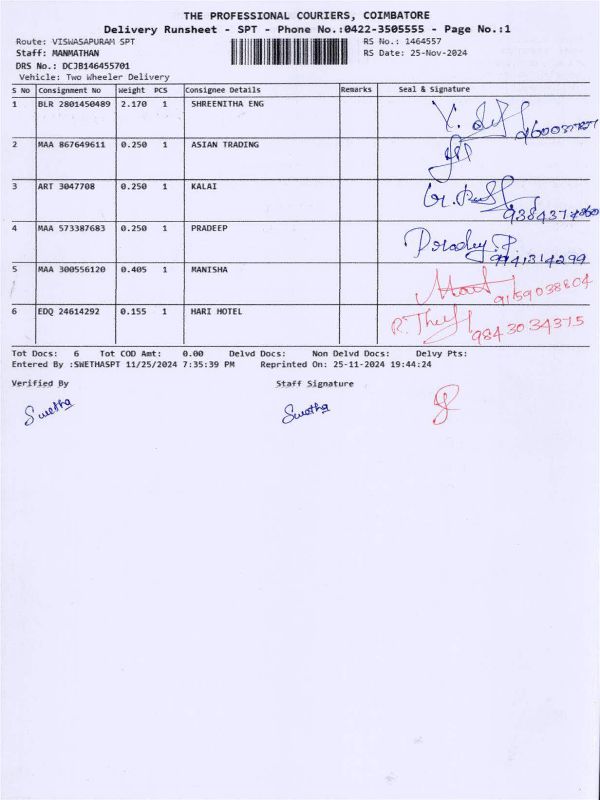 THE PROFESSIONAL COURIERS, COIMBATORE
Delivery Runsheet - SPT - Phone No.:0422-3505555 - Page No.:1
Route: VISWASAPURAM SPT RS No.: 1464557
Staff: MANMATHAN RS Date: 25-Nov-2024
DRS No.: DCJB146455701
Vehicle: Two Wheeler Delivery
S No Consignment No Weight PCS Consignee Details Remarks Seal & Signature
1 BLR 2801450489 2.170 1 SHREENITHA ENG
2 MAA 867649611 0.250 1 ASIAN TRADING
3 ART 3047708 0.250 1 KALAI
4 MAA 573387683 0.250 1 PRADEEP
5 MAA 300556120 0.405 1 MANISHA 9159038804
6 EDQ 24614292 0.155 1 HARI HOTEL 9843034375
Tot Docs: 6 Tot COD Amt: 0.00 Delvd Docs: Non Delvd Docs: Delvy Pts:
Entered By :SWETHASPT 11/25/2024 7:35:39 PM Reprinted On: 25-11-2024 19:44:24
Verified By Staff Signature
Swetha Swetha